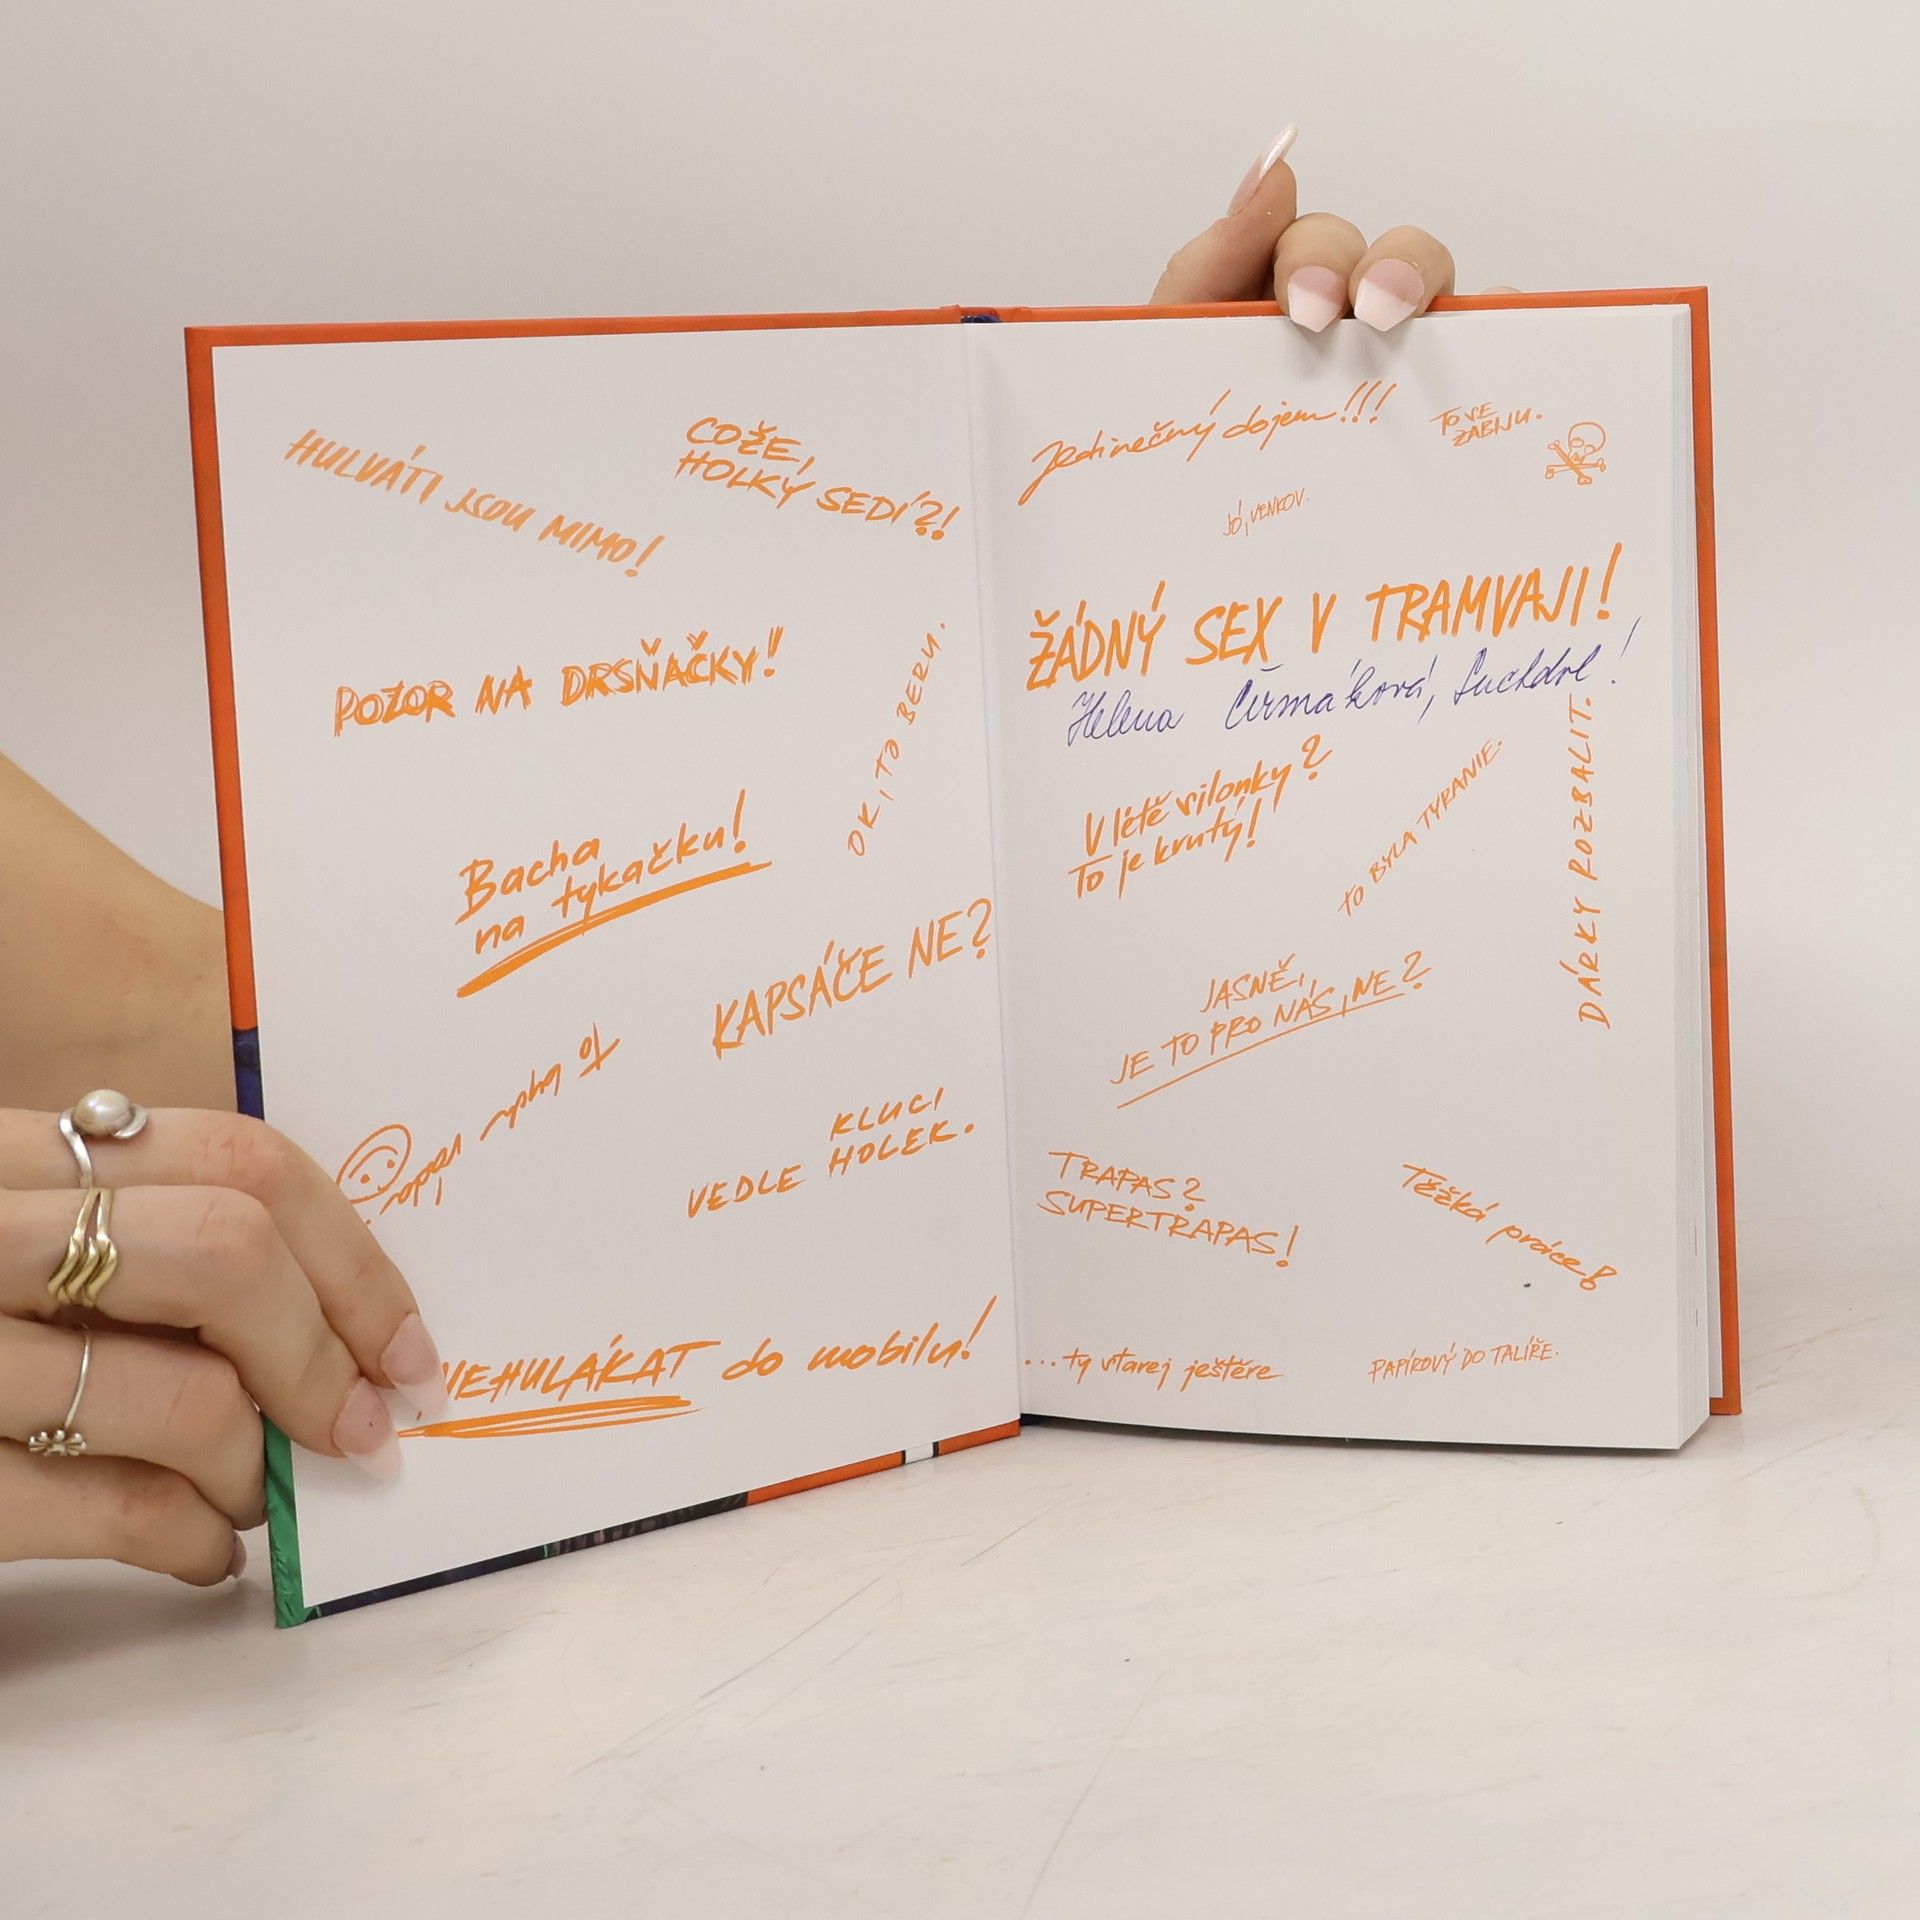 HULVÁTI JSOU MIMO!
COŽE,
HOLKY SEDÍ?!
POZOR NA DRSŇAČKY!
OK, TO BERU.
Bacha
na tykačku!
KAPSÁČE NE?
KLUCI
VEDLE HOLEK.
NEHULÁKAT do mobilu!
Jedinečný dojem!!!
TO SE
ZABIJU.
JÓ, VENKOV.
ŽÁDNÝ SEX V TRAMVAJI!
Helena Čermáková, Suchdol!
V létě silonky?
To je krutý!
TO BYLA TYRANIE.
DÁRKY ROZBALIT.
JASNĚ,
JE TO PRO NÁS, NE?
TRAPAS?
SUPERTRAPAS!
Těžká práce
...ty starej ještěre
PAPÍROVÝ DO TALÍŘE.